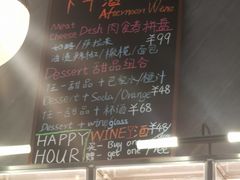 下午酒
Afternoon Wine
Meat
Cheese Desh 肉食者拼盘
奶酪/莎拉米 ¥99
油渍辣椒/橄榄/面包
Dessert 甜品组合
任一甜品 + 巴黎水/橙汁
Dessert + Soda/Orange ¥48
任一甜品 + 杯酒 ¥68
Dessert + wine glass
HAPPY WINE 酒 ¥48
HOUR! 买一 Buy one
赠一 get one / free